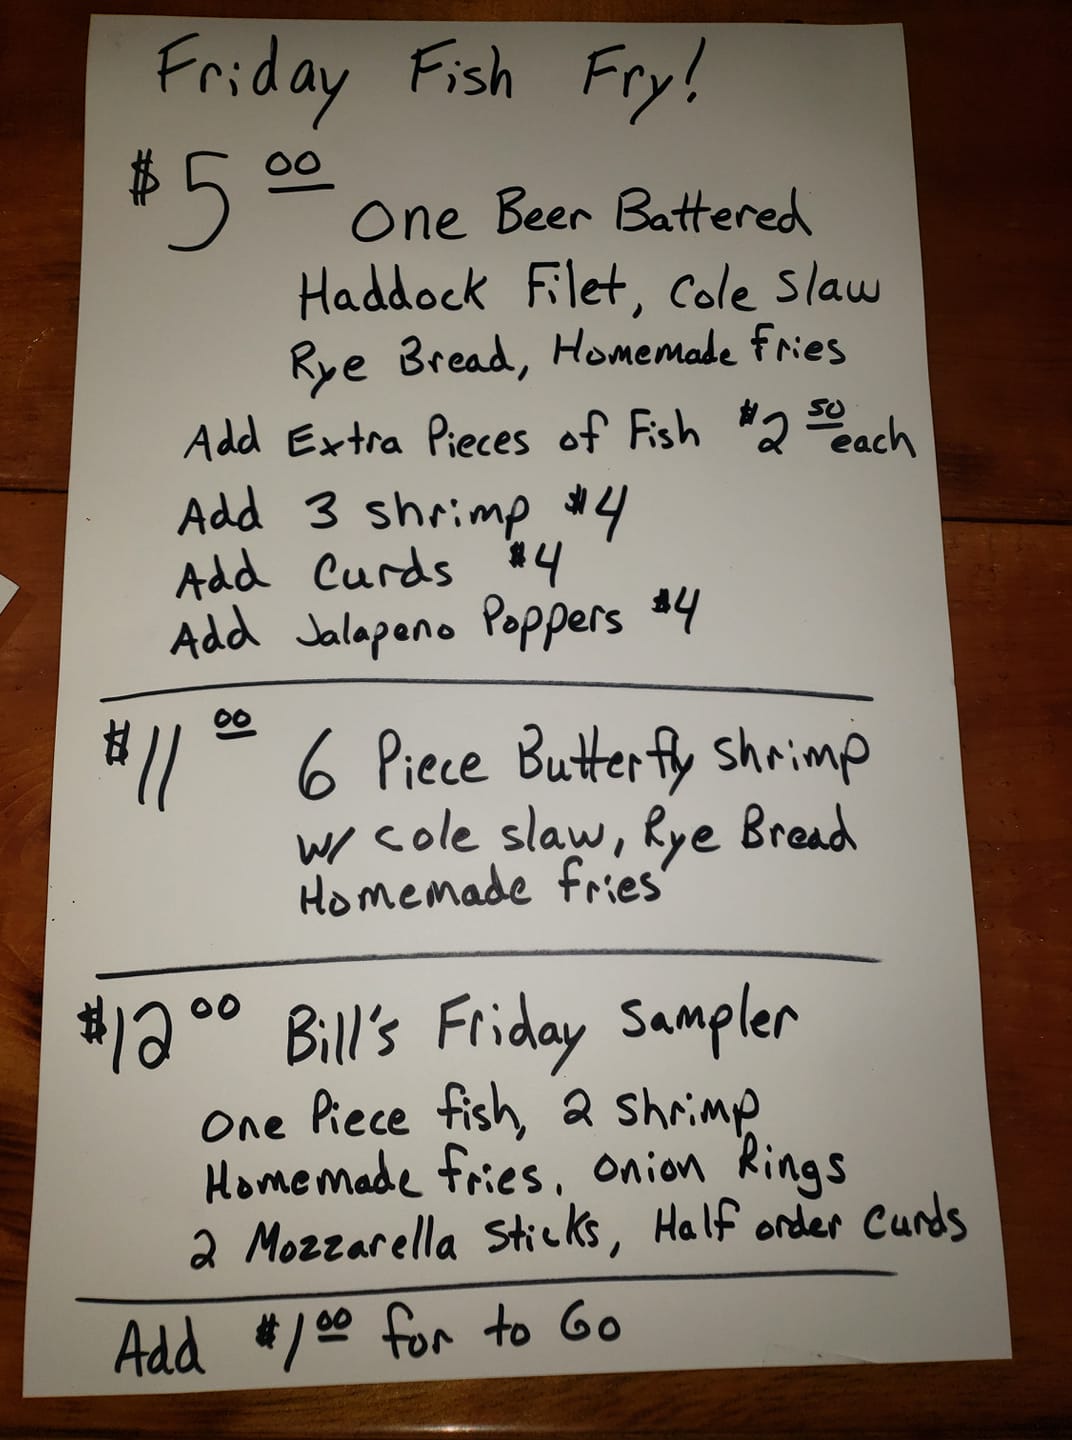 Friday Fish Fry!
$5 00
One Beer Battered
Haddock Filet, Cole Slaw
Rye Bread, Homemade fries
Add Extra Pieces of Fish $2 50 each
Add 3 shrimp $4
Add Curds $4
Add Jalapeno Poppers $4
$11 00 6 Piece Butterfly shrimp
w/ cole slaw, Rye Bread
Homemade fries
$12 00 Bill's Friday Sampler
One Piece fish, 2 shrimp
Homemade fries, Onion Rings
2 Mozzarella Sticks, Half order Curds
Add $1 00 for to Go